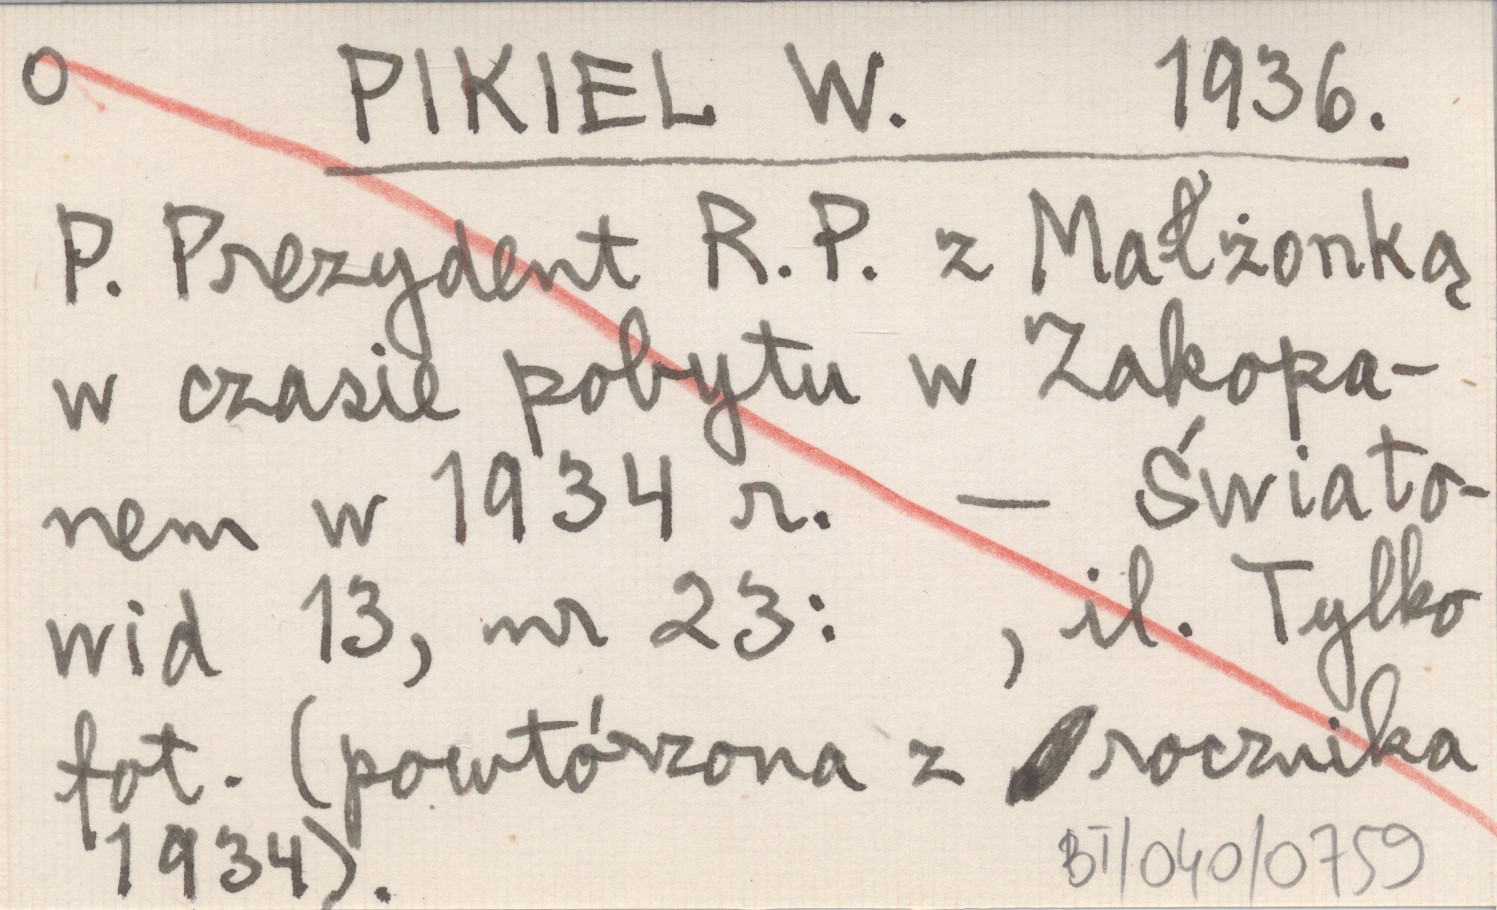 O PIKIEL W. 1936.
P. Prezydent R.P. z Małżonką
w czasie pobytu w Zakopa-
nem w 1934 r. — Świato-
wid 13, nr 23: , il. Tylko
fot. (powtórzona z rocznika
1934).
BT/040/0759